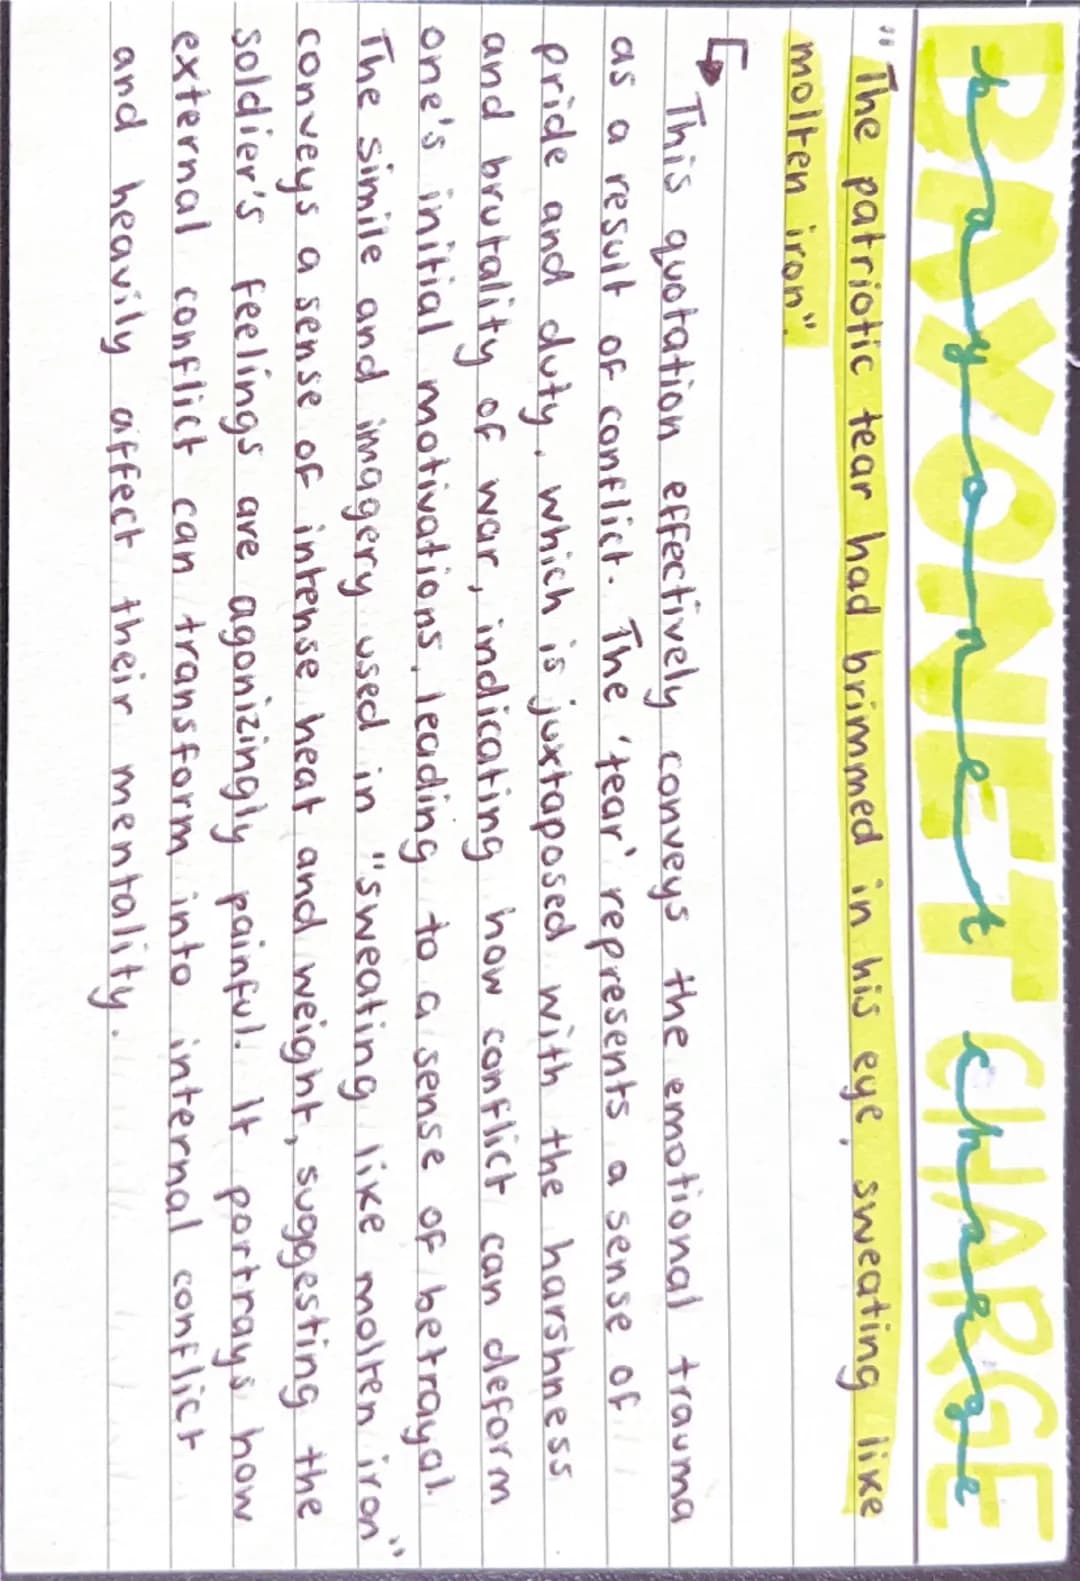 BAYONET CHARGE
bayonet charge
"The patriotic tear had brimmed in his eye, sweating like
molten iron".
This quotation effectively conveys the emotional trauma
as a result of conflict. The 'tear' represents a sense of
pride and duty, which is juxtaposed with the harshness
and brutality of war, indicating how conflict can deform
one's initial motivations, leading to a sense of betrayal.
The simile and imagery used in "sweating like molten iron"
conveys a sense of intense heat and weight, suggesting the
soldier's feelings are agonizingly painful. It portrays how
external conflict can transform into internal conflict
and heavily affect their mentality.